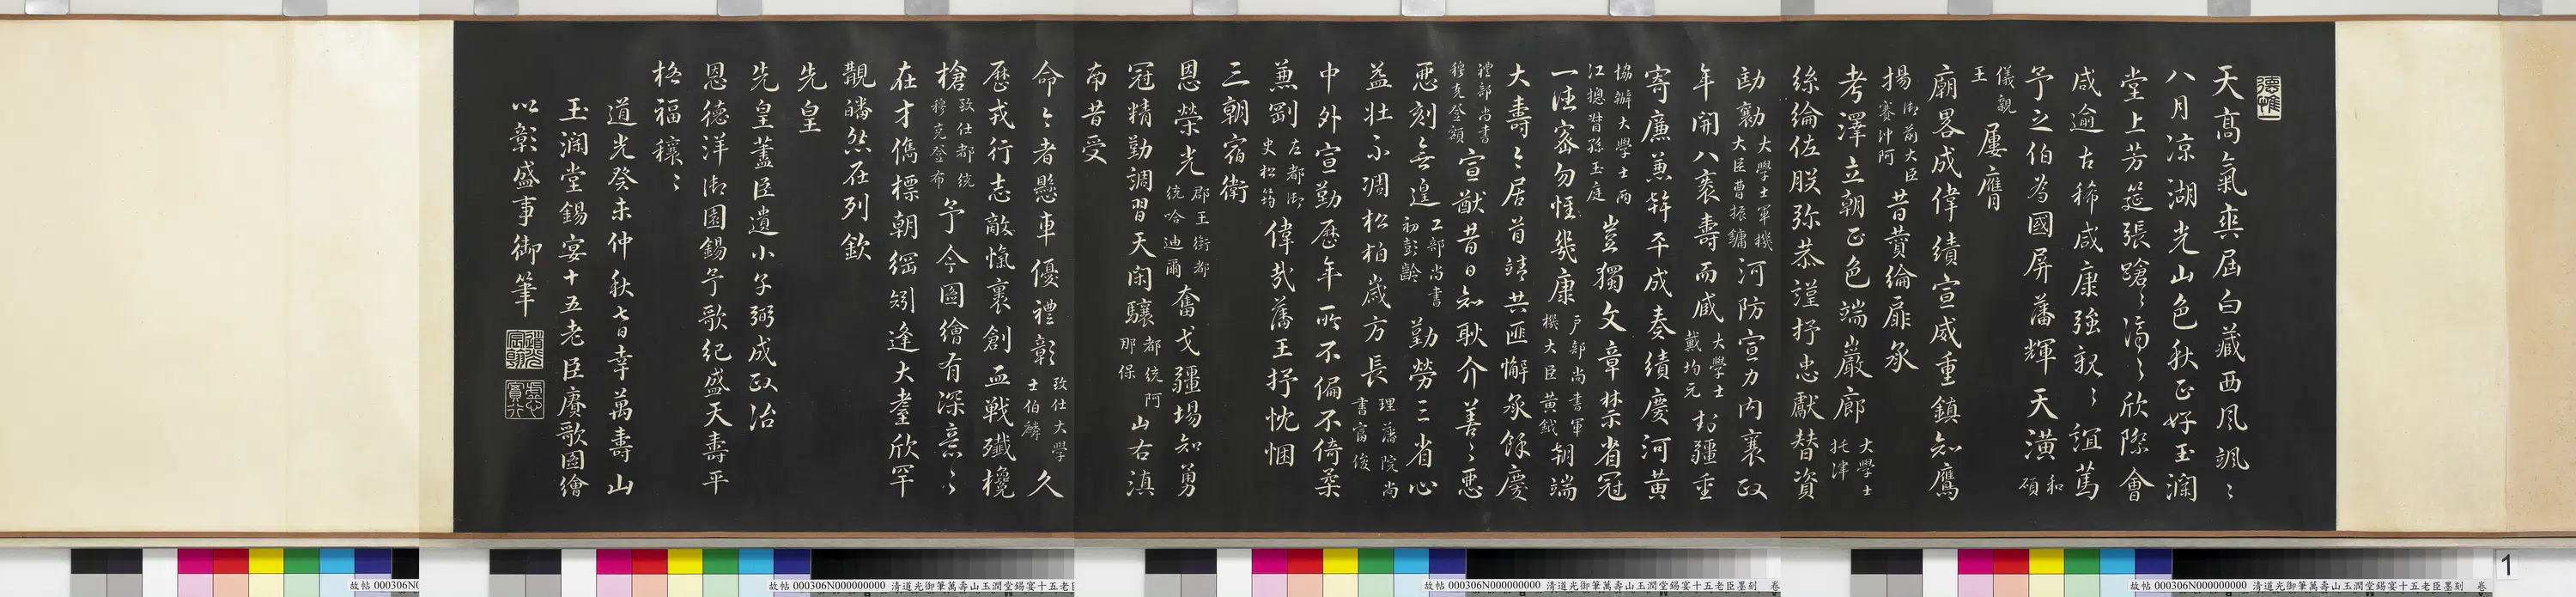 天高氣爽屆白藏西風颯〻
八月涼湖光山色秋正好玉瀾
堂上芳筵張蹌〻濟〻欣際會
咸逾古稀咸康強親〻誼篤
予之伯為國屏藩輝天潢和碩
儀親王屢膺
廟畧成偉績宣威重鎮知鷹
揚御前大臣賽沖阿昔贊綸扉承
考澤立朝正色端巖廊大學士托津
絲綸佐朕弥恭謹抒忠獻替資
勷大學士軍機大臣曹振鏞河防宣力內襄政
年開八袠壽而臧大學士戴均元封疆重
寄廉兼幹平成奏績慶河黃
協辦大學士兩江總督孫玉庭豈獨文章禁省冠
一德密勿惟幾康戶部尚書軍機大臣黃鉞朝端
大壽〻居首靖共匪懈承餘慶
禮部尚書穆克登額宣猷昔日知耿介善〻惡
惡刻無遑工部尚書初彭齡勤勞三省心
益壯不凋松柏歲方長理藩院尚書富俊
中外宣勤歷年所不偏不倚柔
兼剛左都御史松筠偉哉藩王抒忱悃
三朝宿衛
恩榮光郡王銜都統哈迪爾奮戈疆場知勇
冠精勤調習天閑驤都統阿那保山右滇
南昔受
命〻者懸車優禮彰致仕大學士伯麟久
歷戎行志敵愾裹創血戰殲欃
槍致仕都統穆克登布予今圖繪有深意〻
在才儁標朝綱矧逢大耋欣罕
覯皤然在列欽
先皇
先皇藎臣遺小子弼成政治
恩德洋御園錫予歌紀盛天壽平
格福穰〻
道光癸未仲秋七日幸萬壽山
玉瀾堂錫宴十五老臣賡歌圖繪
以彰盛事御筆
道光宸翰
虛心實行
故帖 000306N000000000 清道光御筆萬壽山玉潤堂錫宴十五老臣墨刻 卷
1